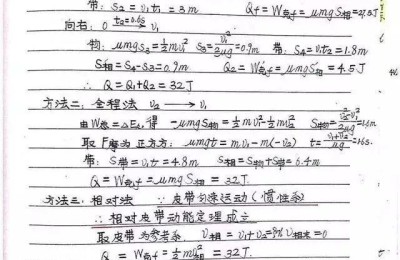 带: S₂ = v₁t₁ = 3m Q₁ = W克f = μmgS相 = 27.5J
向右: 0 t₂=0.6s v₁
物: μmgS₃ = ½mv₁² S₃ = v₁²/2μg = 0.9m 带: S₄ = v₁t₂ = 1.8m
S相 = S₄-S₃ = 0.9m Q₂ = W克f = μmgS相 = 4.5J
∴ Q = Q₁+Q₂ = 32J
方法二: 全程法 v₂ → v₁
由W总 = ΔEₖ, 得 -μmgS物 = ½mv₁² - ½mv₂² S物 = v₂²-v₁²/2μg = 1.6m
取F摩为正方方: μmgt = mv₁ - m(-v₂) t = =1.6s
带: S带 = v₁t = 4.8m S相 = S物+S带 = 6.4m
Q = W克f = μmgS相 = 32J.
方法三: 相对法 ∵ 皮带匀速运动(惯性系)
∴ 相对皮带动能定理成立
取皮带为参考系, v相初 = v₁+v₂ = 8m/s v相末 = 0
Q = W克f = ½mv相² = 32J.